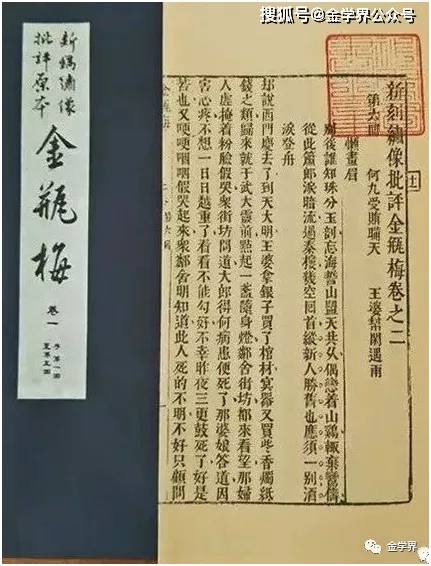 搜狐号@金学界公众号
新鐫繡像
批評原本
金瓶梅
卷一
序 第一回
至第五回
新刻繡像批評金瓶梅卷之二
第六回 何九受賄瞞天 王婆幫閑遇雨
懶畫眉
別後誰知珠分玉剖忘海誓山盟天共久偶戀着山鷄輒棄鸞儔
從此簫郎淚暗流過秦樓幾空回首縱新人勝舊也應須一別洒
淚登舟
却說西門慶去了到天大明王婆拿銀子買了棺材冥器又買些香燭紙
錢之類歸來就于武大靈前點起一盞隨身燈鄰舍街坊都來看望那婦
人虛掩着粉臉假哭衆街坊問道大郎得何病患便死了那婆娘答道因
害心疼不想一日日越重了看看不能勾好不幸昨夜三更鼓死了好是
苦也又哽哽咽咽假哭起來衆鄰舍明知道此人死的不明不好只顧問
金学界